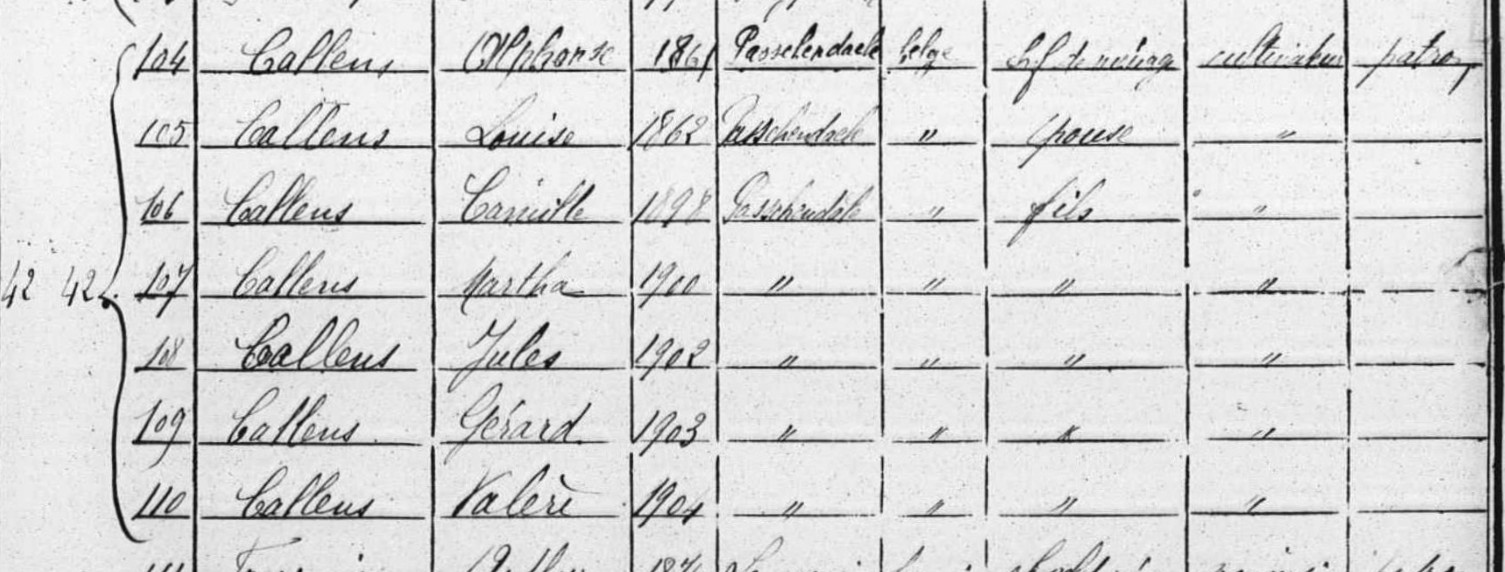 104 Callens Alphonse 1861 Passchendaele belge chf de ménage cultivateur patron
105 Callens Louise 1862 Passchendaele " épouse "
106 Callens Camille 1898 Passchendale " fils "
42 42 107 Callens Martha 1900 " " " "
108 Callens Jules 1902 " " " "
109 Callens Gérard 1903 " " " "
110 Callens Valère 1904 " " " "